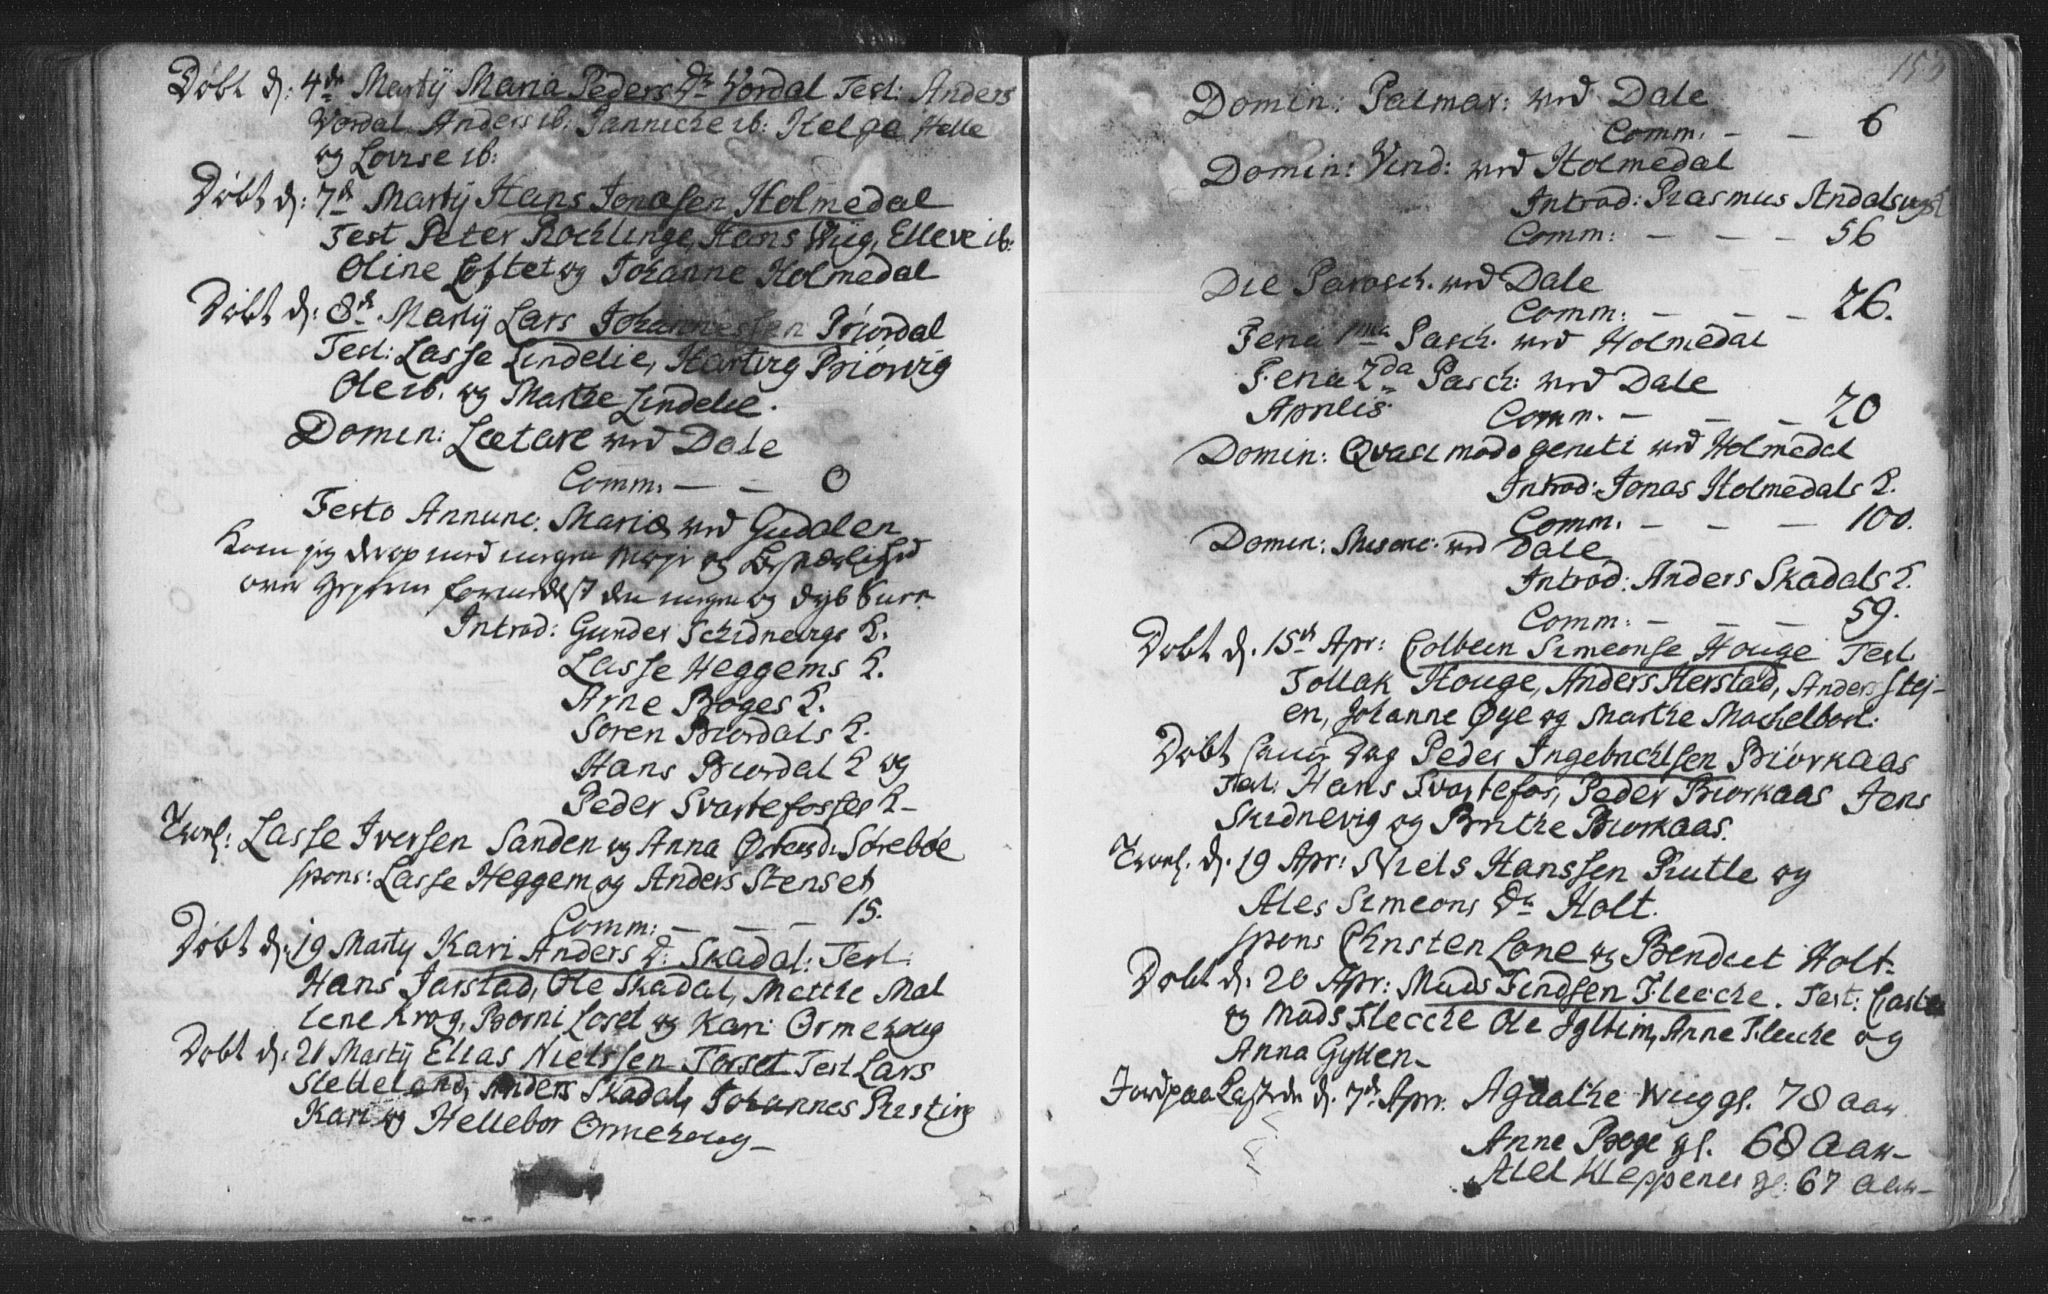 Döbt d: 4de Martij Maria Peders Dr Vordal Test: Anders
Vordal Anders ib: Jannicke ib: Helge Helle
og Lovise ib:
Döbt d: 7de Martij Hans Jonasen Holmedal
Test Peter Rocklinge, Hans Wiig, Elleve ib:
Oline Loftet og Johanne Holmedal
Döbt d: 8de Martij Lars Johannessen Biordal
Test: Lasse Lindelie, Hartvig Biörvig
Ole ib. og Marthe Lindelie.
Domin: Lætare ved Dale
Comm: — — 0
Festo Annunc: Mariæ ved Gudalen
kom jeg derop med megen Møje og Besværlighed
over
Introd: Gunder Schidnevigs K.
Lasse Heggems K.
Arne Böges K.
Sören Biordals K.
Hans Biordal K og
Peder Svartefosses K—
Trorl: Lasse Iversen Sanden og Anna Söreböe
spons: Lasse Heggem og Anders Stenset
Comm: — — — 15.
Döbt d: 19 Martij Kari Anders D: Skadal: Test:
Hans Jarstad, Ole Skadal, Metthe Mal
lene Krog, Börni Loset og Kari Ormehoug
Döbt d: 21 Martij Elias Nielssen Torset Test Lars
Stelleland, Anders Skadal, Johannes Risting
Kari og Hellebor Ormehoug—
150
Domin: Palmar: ved Dale
Comm: — — 6
Domin: Vind: ved Holmedal
Introd: Rasmus Andals
Comm: — — — 56
Die Parasch. ved Dale
Comm: — — — 26.
Feria 1ma Pasch. ved Holmedal
Feria 2da Pasch: ved Dale
Aprilis Comm. — — — 20
Domin: Qvasimodogeniti ved Holmedal
Introd: Jonas Holmedals K.
Comm. — — — 100.
Domin: Miseric: ved Dale
Introd: Anders Skadals K.
Comm: — — — 59.
Döbt d. 15de Apr: Colbein Simeonse Houge Test
Tollak Houge, Anders Herstad, Anders Stej-
en, Johanne Öye og Marthe Machelbost:
Döbt samme Dag Peder Ingebrichtsen Biörkaas
Test: Hans Svartefos, Peder Biorkaas Jens
Skidnevig og Brithe Biorkaas.
Trorl. d. 19 Apr: Niels Hanssen Rutle og
Ales Simeons Dr Holt.
spons Christen Lone og Bendict Holt—
Döbt d: 20 Apr: Mads Findsen Flecche. Test:
og Mads Flecche Ole Ygltim, Anne Flecche og
Anna Gyllen—
Jordpaa Kastede d. 7de Apr. Agathe Wiig gl. 78 aar
Anne Böge gl. 68 aar—
Alet Kleppenes gl: 67 aar—